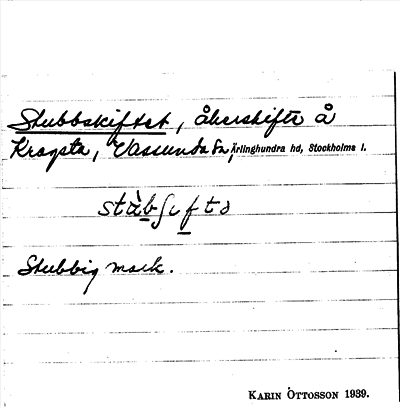 Stubbskiftet, åkerskifte å
Krogsta, Vassunda sn, Ärlinghundra hd, Stockholms l.
Stubbig mark.
KARIN OTTOSSON 1939.